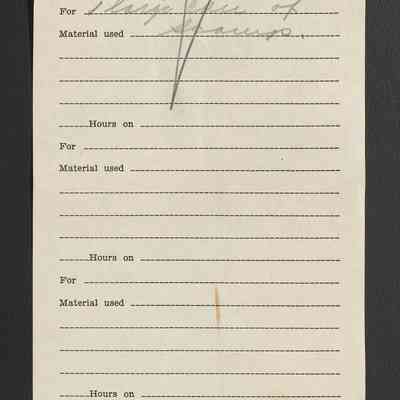 For 1 large Can of
Material used
Hours on
For
Material used
Hours on
For
Material used
Hours on